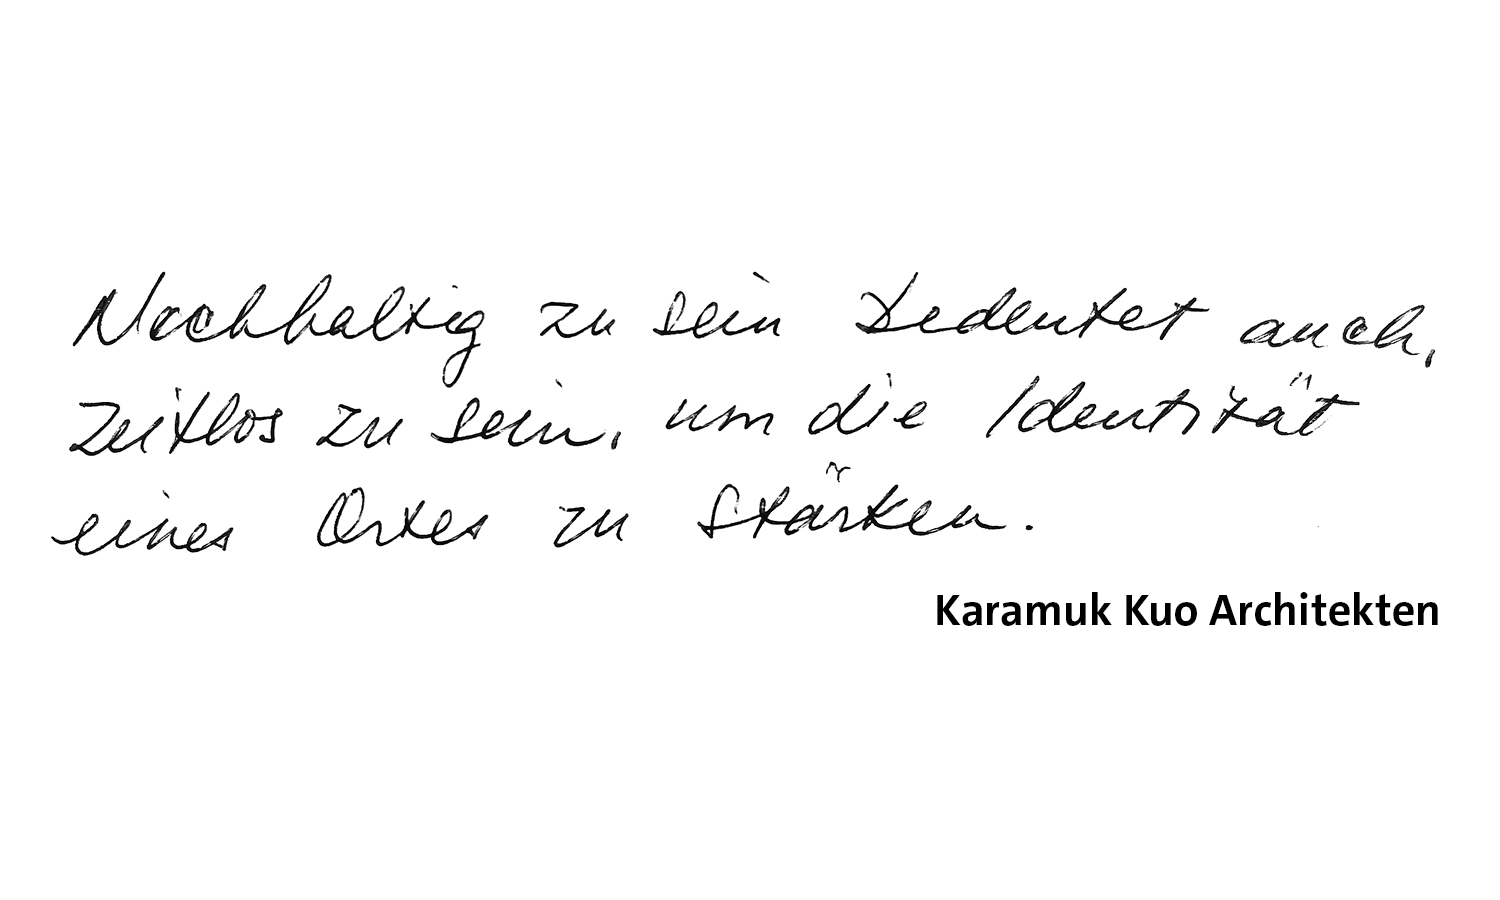 Nachhaltig zu sein bedeutet auch,
zeitlos zu sein, um die Identität
eines Ortes zu stärken.
Karamuk Kuo Architekten